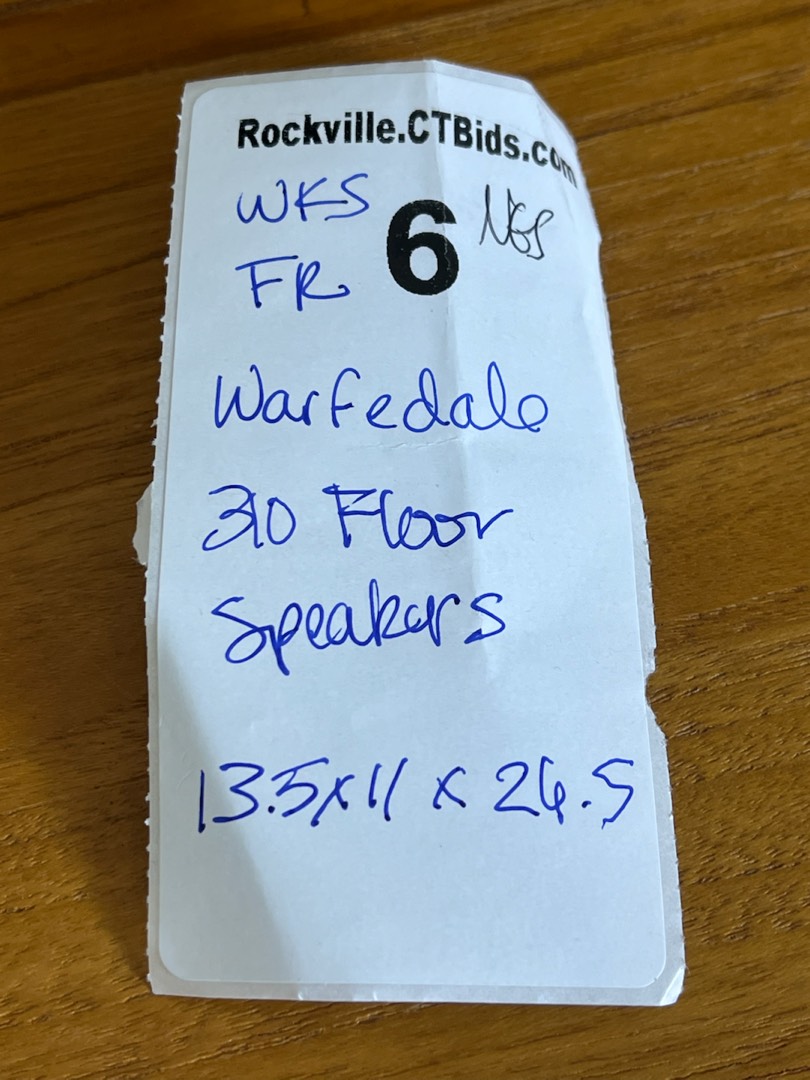 Rockville.CTBids.com
WKS
6
FR
Warfedale
310 Floor
Speakers
13.5x11 x 26.5